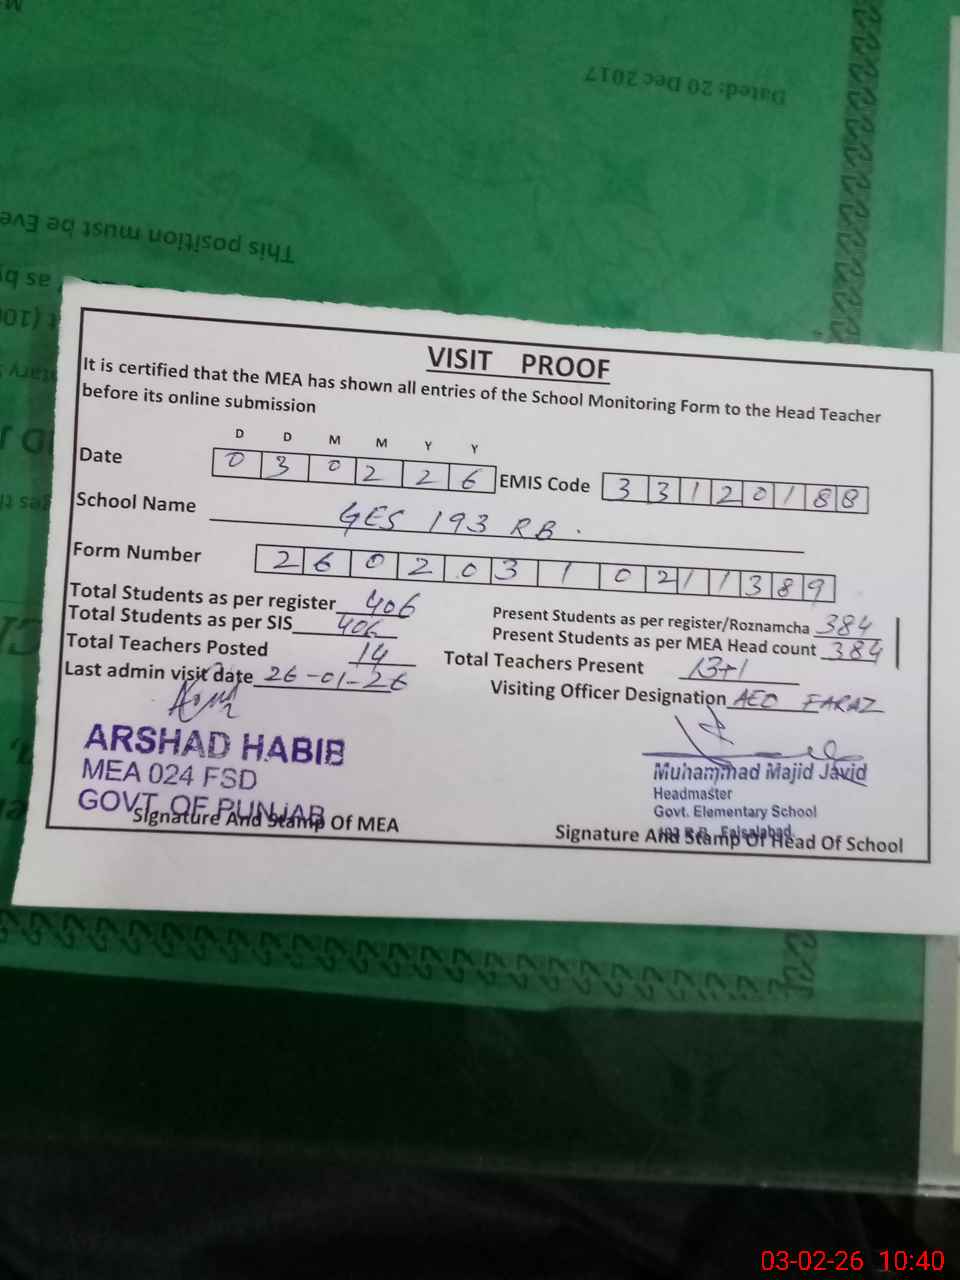 Dated: 20 Dec 2017
This position must be Eve
as by
VISIT PROOF
It is certified that the MEA has shown all entries of the School Monitoring Form to the Head Teacher
before its online submission
D D M M Y Y
Date 0 3 0 2 2 6 EMIS Code 3 3 1 2 0 1 8 8
School Name GES 193 RB.
Form Number 2 6 0 2 0 3 1 0 2 1 1 3 8 9
Total Students as per register 406 Present Students as per register/Roznamcha 384
Total Students as per SIS 406 Present Students as per MEA Head count 384
Total Teachers Posted 14 Total Teachers Present 13+1
Last admin visit date 26-01-26 Visiting Officer Designation AEO FARAZ
ARSHAD HABIB
MEA 024 FSD
GOVT. OF PUNJAB
Signature And Stamp Of MEA
Muhammad Majid Javid
Headmaster
Govt. Elementary School
193 R.B. Faisalabad
Signature And Stamp Of Head Of School
03-02-26 10:40